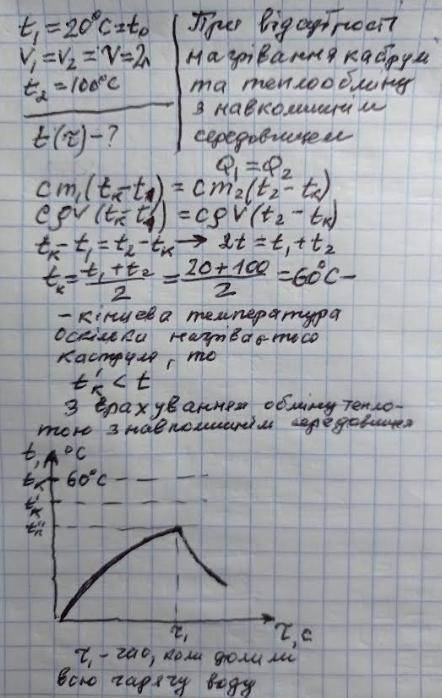 t₁=20°C=t₀
V₁=V₂=V=2л
t₂=100°C
t(τ)-?
При відсутності
нагрівання каструлі
та теплообміну
з навколишнім
середовищем
Q₁=Q₂
cm₁(tк-t₁)=cm₂(t₂-tк)
cρV(tк-t₁)=cρV(t₂-tк)
tк-t₁=t₂-tк → 2t=t₁+t₂
tк=(t₁+t₂)/2=(20+100)/2=60°C-
- кінцева температура
Оскільки нагрівається
каструля, то
t'к < t
З врахуванням обміну тепло-
тою з навколишнім середовищем
t, °C
tк 60°C
t'к
t''к
τ₁
τ, c
τ₁ - час, коли долили
всю гарячу воду